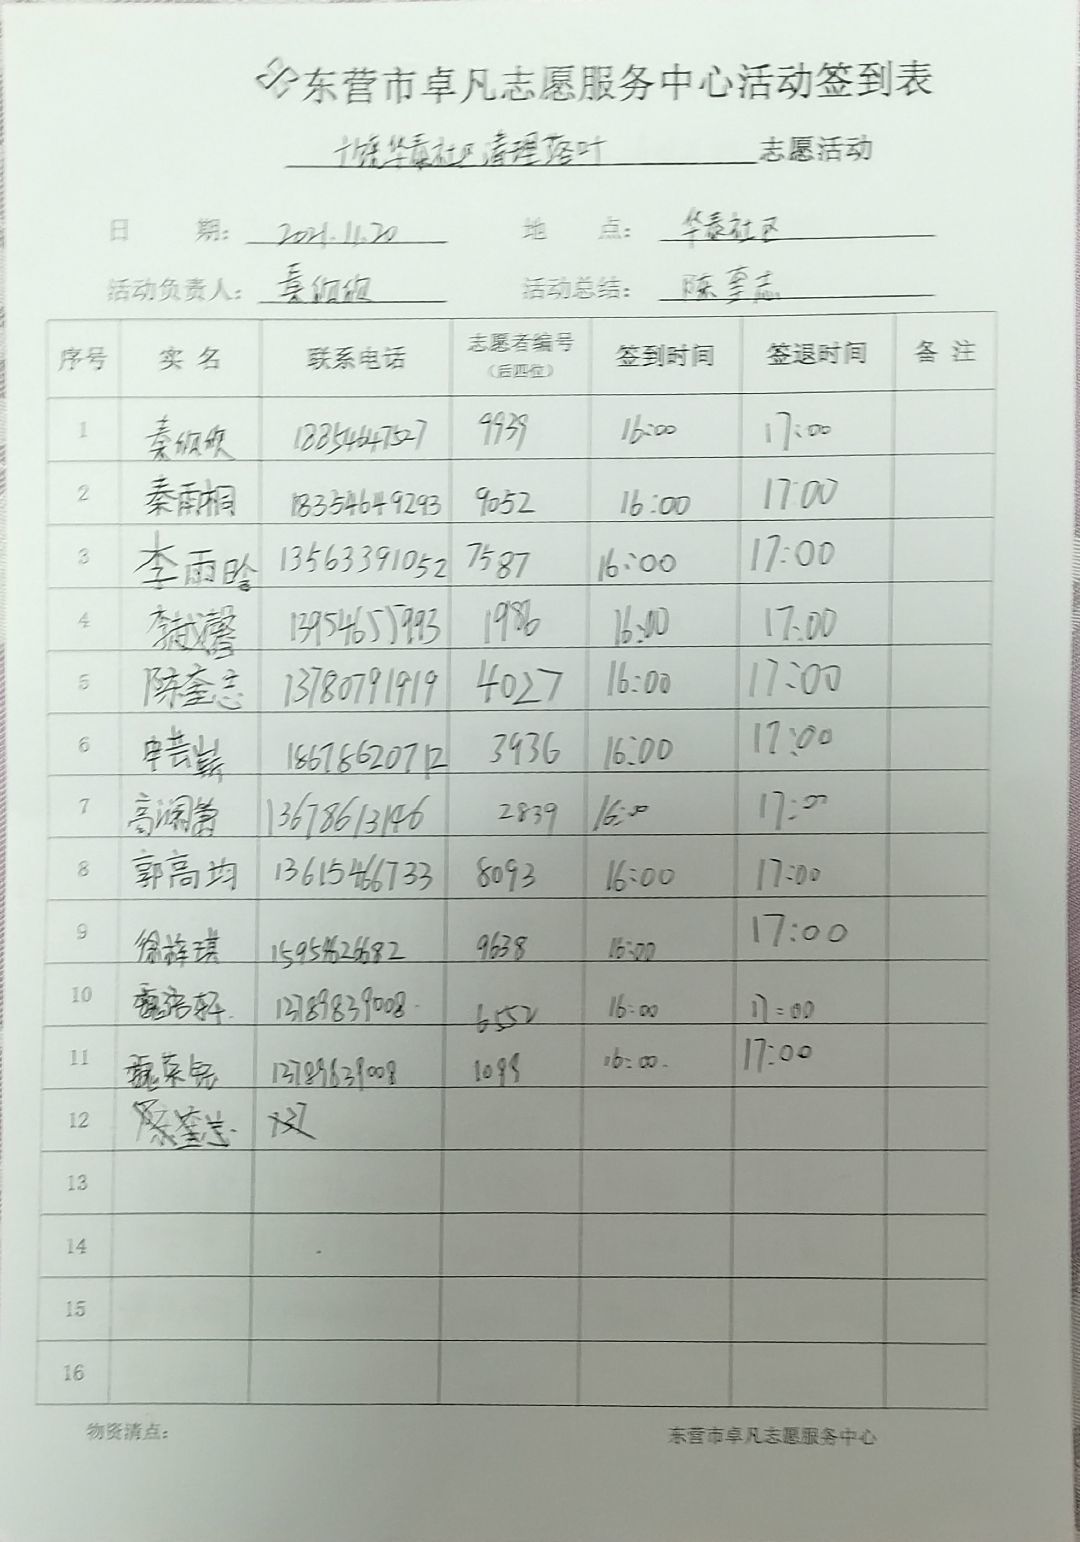 东营市卓凡志愿服务中心活动签到表
华泰社区清理落叶 志愿活动
日 期: 2021.11.20 地 点: 华泰社区
活动负责人: 秦欣欣 活动总结: 陈奎志
序号 实 名 联系电话 志愿者编号 (后四位) 签到时间 签退时间 备 注
1 秦欣欣 18354647527 9939 16:00 17:00
2 秦雨桐 18354649293 9052 16:00 17:00
3 李雨晗 13563391052 7587 16:00 17:00
4 李越馨 13954655993 1986 16:00 17:00
5 陈奎志 13780791919 4027 16:00 17:00
6 18678620712 3936 16:00 17:00
7 13678613146 2839 16:00 17:00
8 郭高均 13615466733 8093 16:00 17:00
9 徐梓琪 15954626682 9638 16:00 17:00
10 13789839008 6552 16:00 17:00
11 13789839008 1099 16:00 17:00
12 陈奎志
13
14
15
16
物资清点: 东营市卓凡志愿服务中心